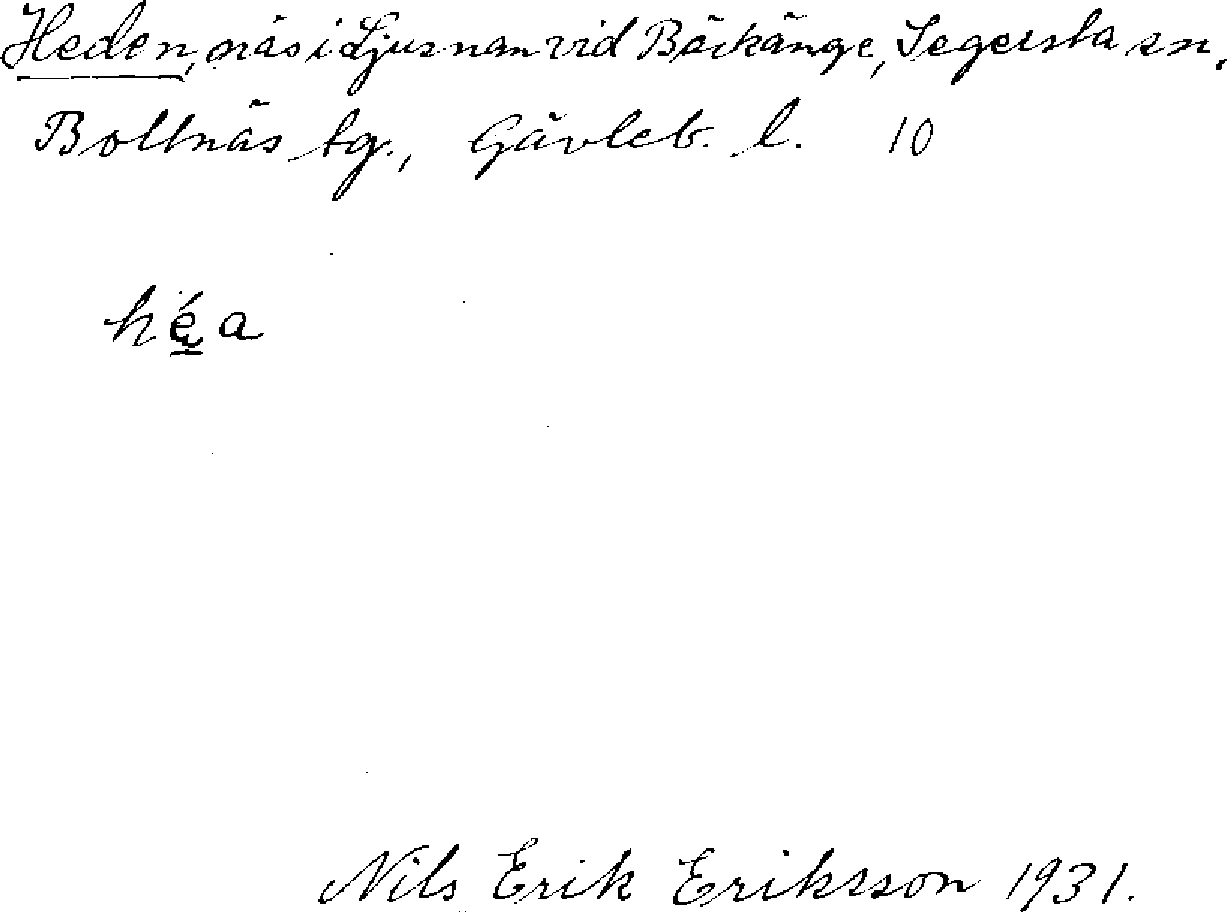 Heden, näs i Ljusnan vid Bäckänge, Segersta sn,
Bollnäs tg., Gävleb. l. 10
héa
Nils Erik Eriksson 1931.